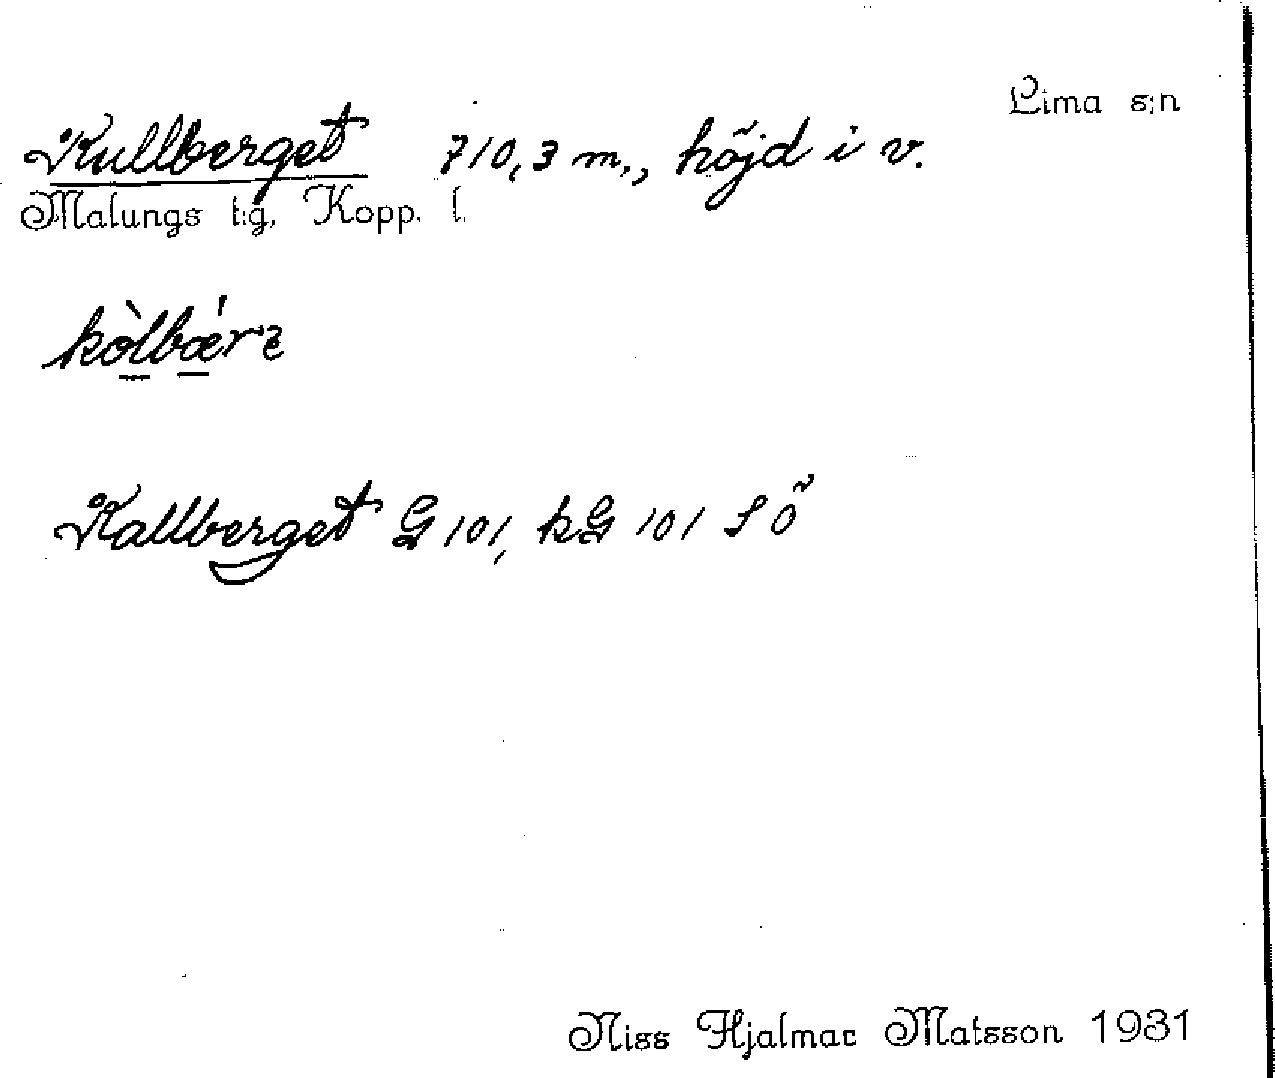 Lima s:n
Kullberget 710,3 m., höjd i v.
Malungs t:g, Kopp. l.
kòlbǽrɛ
Kallberget G 101, kG 101 SÖ
Niss Hjalmar Matsson 1931